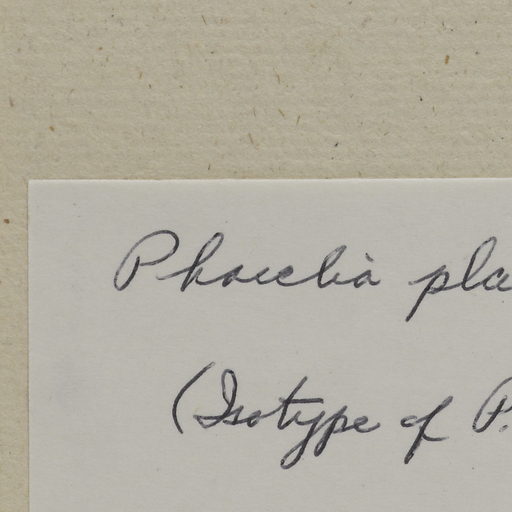 Phacelia pla
(Isotype of P.